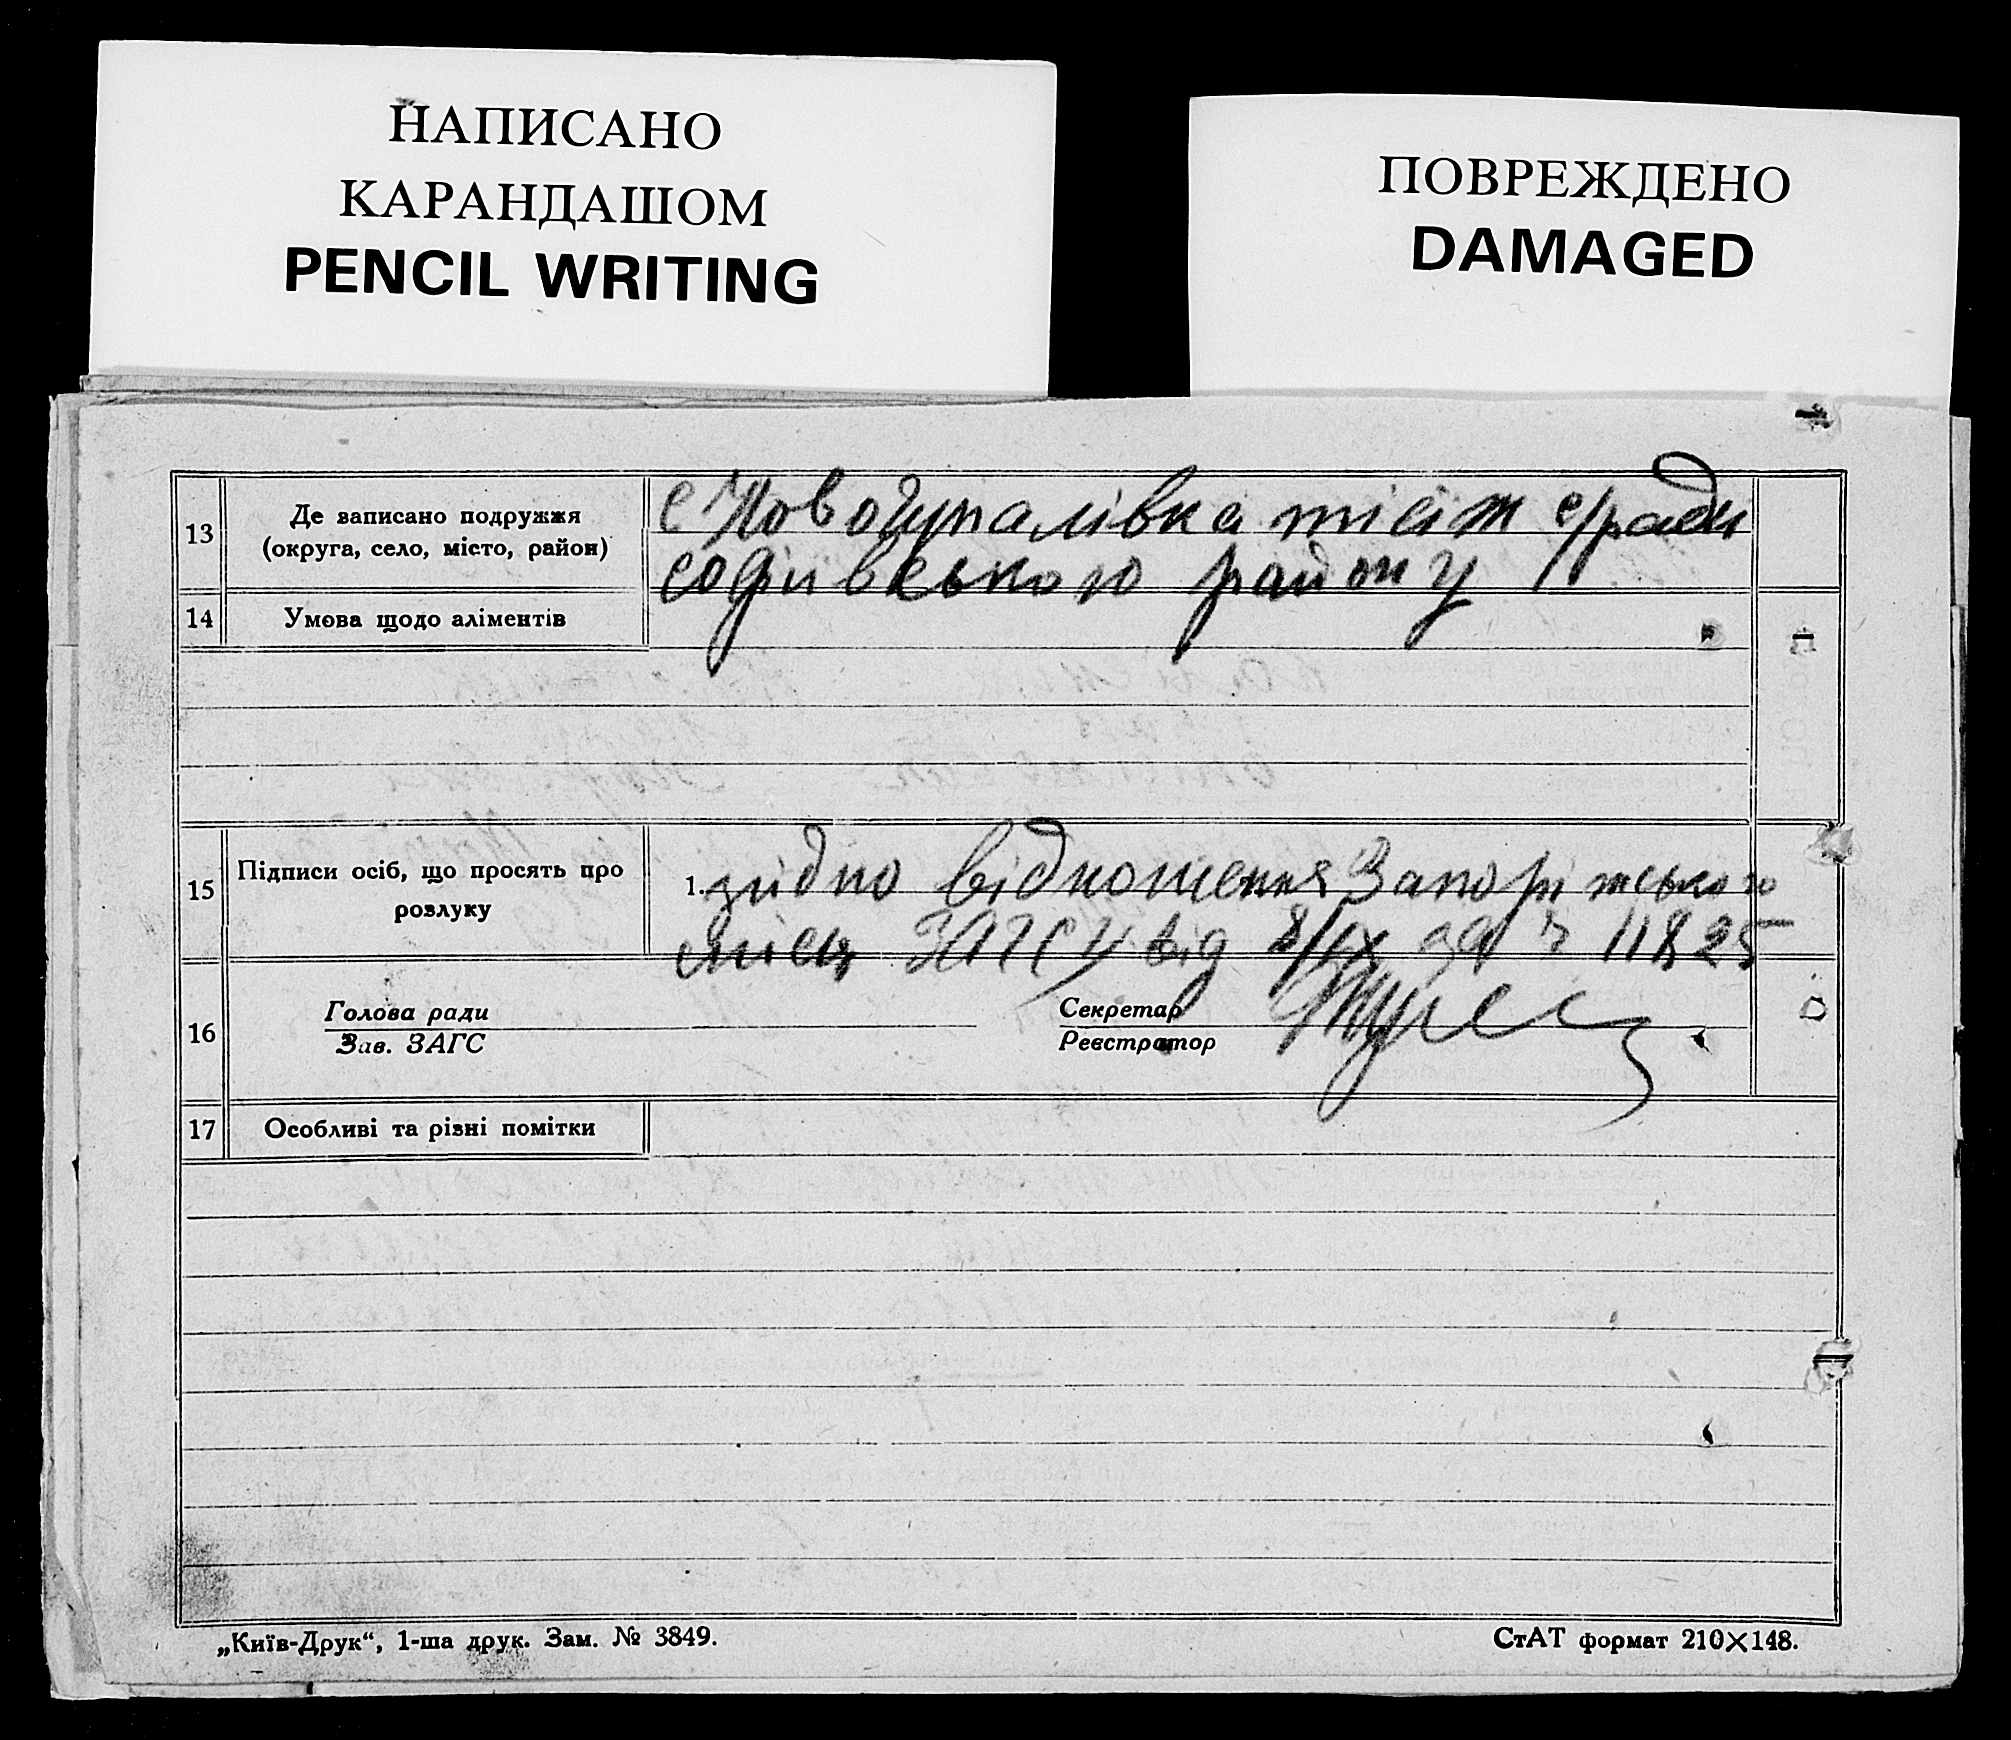 НАПИСАНО
КАРАНДАШОМ
PENCIL WRITING
ПОВРЕЖДЕНО
DAMAGED
13 Де записано подружжя
(округа, село, місто, район)
с Новогупалівка тієїж с/ради
софіївського району
14 Умова щодо аліментів
15 Підписи осіб, що просять про
розлуку
1. згідно відношення Запоріжського
міськ ЗАГСУ від 8/IX за ч 11825
16 Голова ради
Зав. ЗАГС
Секретар
Реєстратор
17 Особливі та різні помітки
„Київ-Друк“, 1-ша друк. Зам. № 3849.
СтАТ формат 210×148.